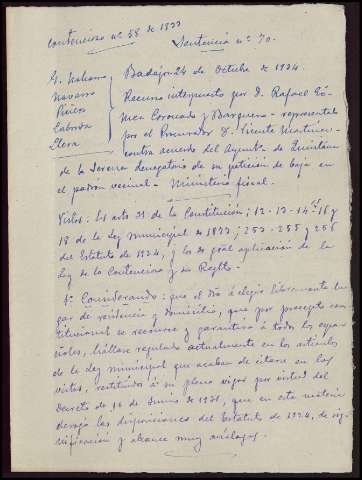 Contencioso nº 58 de 1933
Sentencia nº 70.
Badajoz 24 de Octubre de 1934.
Navarro
Recurso interpuesto por D. Rafael Gó-
Piñero
mez Coronado y Barquero - representado
Cabrera
por el Procurador D. Vicente Martínez -
Llera
contra acuerdo del Ayunto. de Quintana
de la Serena denegatorio de su petición de baja en
el padrón vecinal - Ministerio fiscal.
Vistos: Los arts 31 de la Constitución; 12-13-14- 16 y
18 de la Ley Municipal de 1877; 253-255 y 256
del Estatuto de 1924, y los de gral aplicación de la
Ley de lo Contencioso y su Reglto.
1º Considerando: que el dro á elegir libremente lu-
gar de residencia y domicilio, que por precepto cons-
titucional se reconoce y garantiza á todos los espa-
ñoles, hállase regulado actualmente en los artículos
de la ley municipal que acaban de citarse en los
vistos, restituidos á su pleno vigor por virtud del
Decreto de 16 de Junio de 1931, que en esta materia
deroga las disposiciones del Estatuto de 1924, de sig-
nificación y alcance muy análogos.